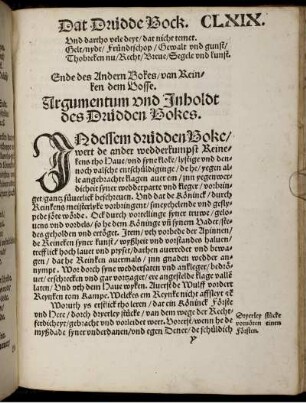 Dat Drüdde Bock. CLXIX.
Vnd dartho vele deyt / dat nicht temet.
Gelt / nydt / Fründtschop / Gewalt vnd gunst /
Thobreken nu / Recht / Breue / Segele vnd kunst.
Ende des Andern Bokes / van Rein-
ken dem Vosse.
Argumentum vnd Inholdt
des Drüdden Bokes.
IN dessem drüdden Boke /
wert de ander wedderkumpst Reine-
kens tho Haue / vnd syne kloke / lystige vnd den-
noch valsche entschüldiginge / de he / yegen al-
le angebrachte klagen auer en / yun yegenwer-
dicheit syner wedderparte vnd kleger / vorbrin-
get gantz süuerlick beschreuen. Vnd dat de Köninck / dorch
Reinkens müsterlike vorbringent / sus
sote wörde. Ock dorch vortellinge syner truwe / gedo-
ens vnd vordele / so he dem Köninge vñ synem Vader / ste-
des geholden vnd ertöget. Item / vth vorbede der Apinnen /
de Reinken syner kunst / wyßheit vnd vorstandes haluen /
trefflick hoch lauet vnd pryset /
gen / dat he Reinken auermals / jnn gnaden wedder anna-
mpt. Wor dorch syne wedderparten vnd ankleger / bedrö-
uet / erschrocken vnd gar vortzaget / ere angestelde klage valle
laten / Vnd vth dem Haue wyken. Auerst de Wulff vordert
Reynken tom Kampe. Welckes em Reynke nicht affsleyt ꝛc̃
Woruth ys erstlick tho leren / dat ein Köninck Förste
vnd Here / dorch dreyerley stücke / van dem wege der Recht-
ferdicheyt / gebracht vnd vorleidet wert. Vorerst / wenn he de
myßdade syner vnderdanen / vnd egen Dener / de schüldich
Dreyerley
einen
Försten.
y